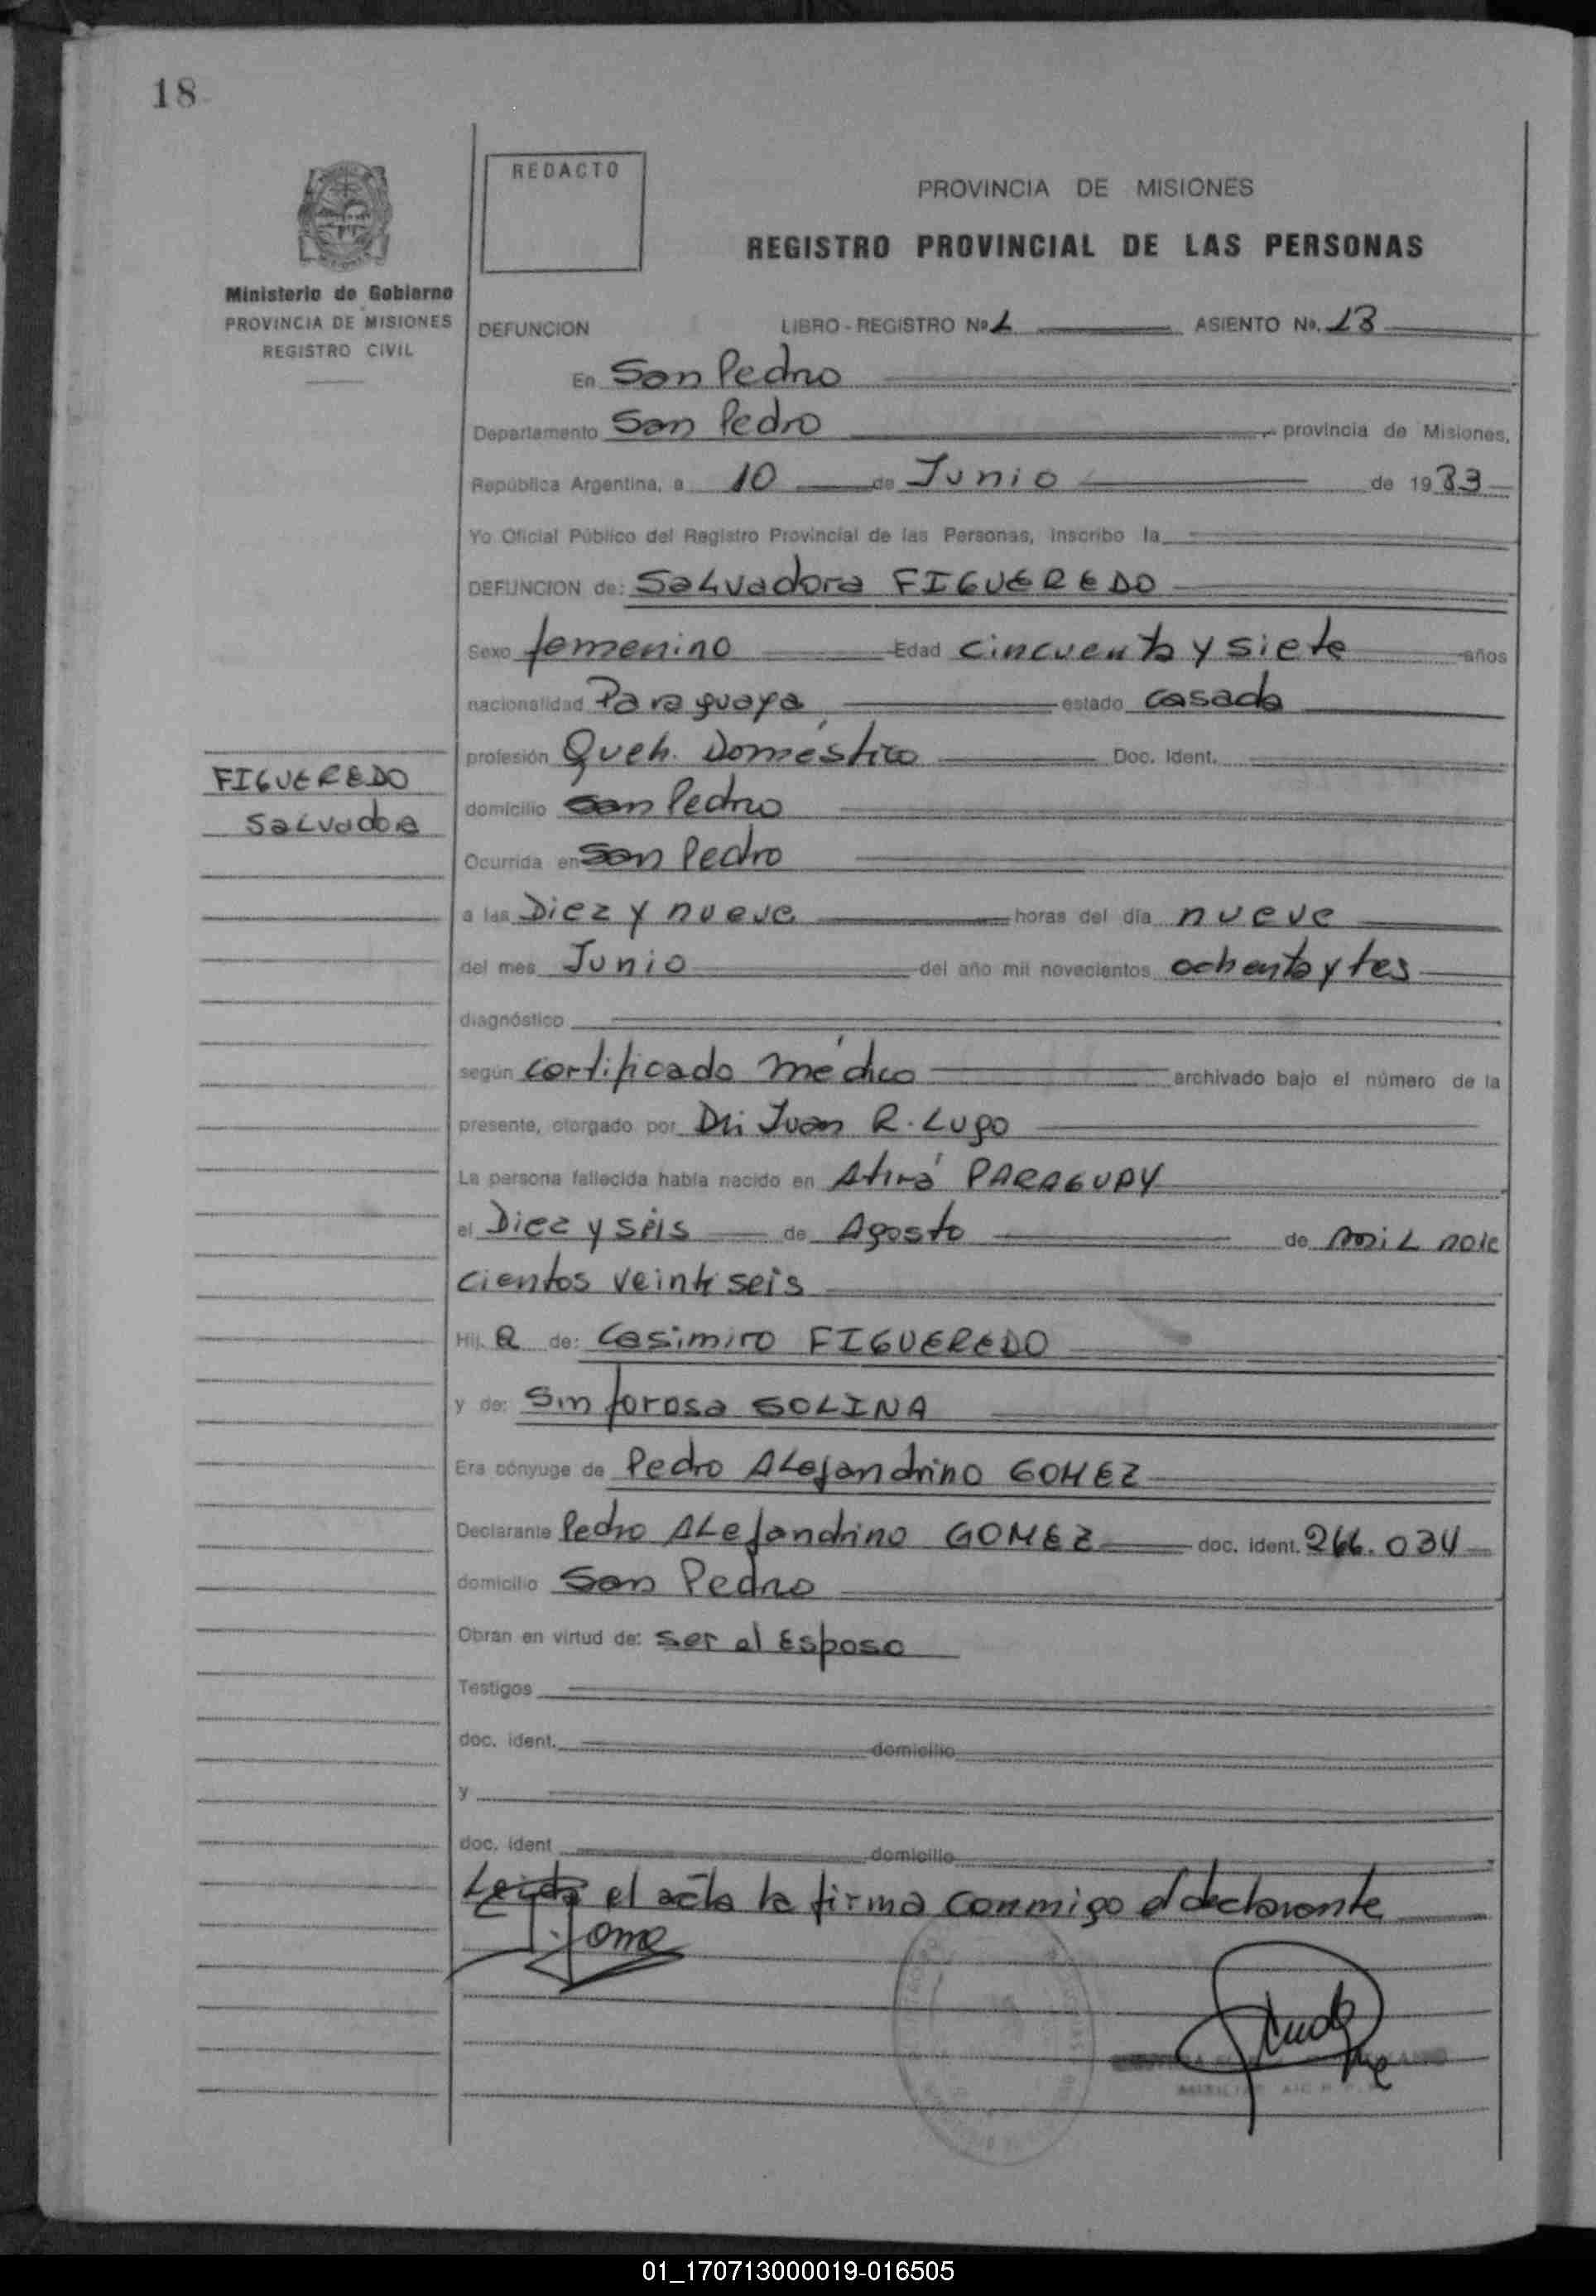 18
REDACTO
PROVINCIA DE MISIONES
REGISTRO PROVINCIAL DE LAS PERSONAS
Ministerio de Gobierno
PROVINCIA DE MISIONES
REGISTRO CIVIL
DEFUNCION LIBRO - REGISTRO Nº 1 ASIENTO Nº. 13
En San Pedro
Departamento San Pedro provincia de Misiones,
República Argentina, a 10 de Junio de 1983
Yo Oficial Público del Registro Provincial de las Personas, inscribo la
DEFUNCION de: Salvadora FIGUEREDO
Sexo femenino Edad cincuenta y siete años
nacionalidad Paraguaya estado casada
profesión Queh. Doméstico Doc. Ident.
FIGUEREDO
Salvadora
domicilio San Pedro
Ocurrida en San Pedro
a las Diez y nueve horas del día nueve
del mes Junio del año mil novecientos ochenta y tes
diagnóstico
según certificado médico archivado bajo el número de la
presente, otorgado por Dr: Juan R. Lugo
La persona fallecida había nacido en Atirá PARAGUAY
el Diez y séis de Agosto de mil nove
cientos veinte seis
Hij. a de: Casimiro FIGUEREDO
y de: Sinforosa SOLINA
Era cónyuge de Pedro Alejandrino GOMEZ
Declarante Pedro Alejandrino GOMEZ doc. ident. 266.034
domicilio San Pedro
Obran en virtud de: ser el Esposo
Testigos
doc. ident. domicilio
y
doc. ident domicilio
Leida el acta la firma conmigo el declarante
01_170713000019-016505